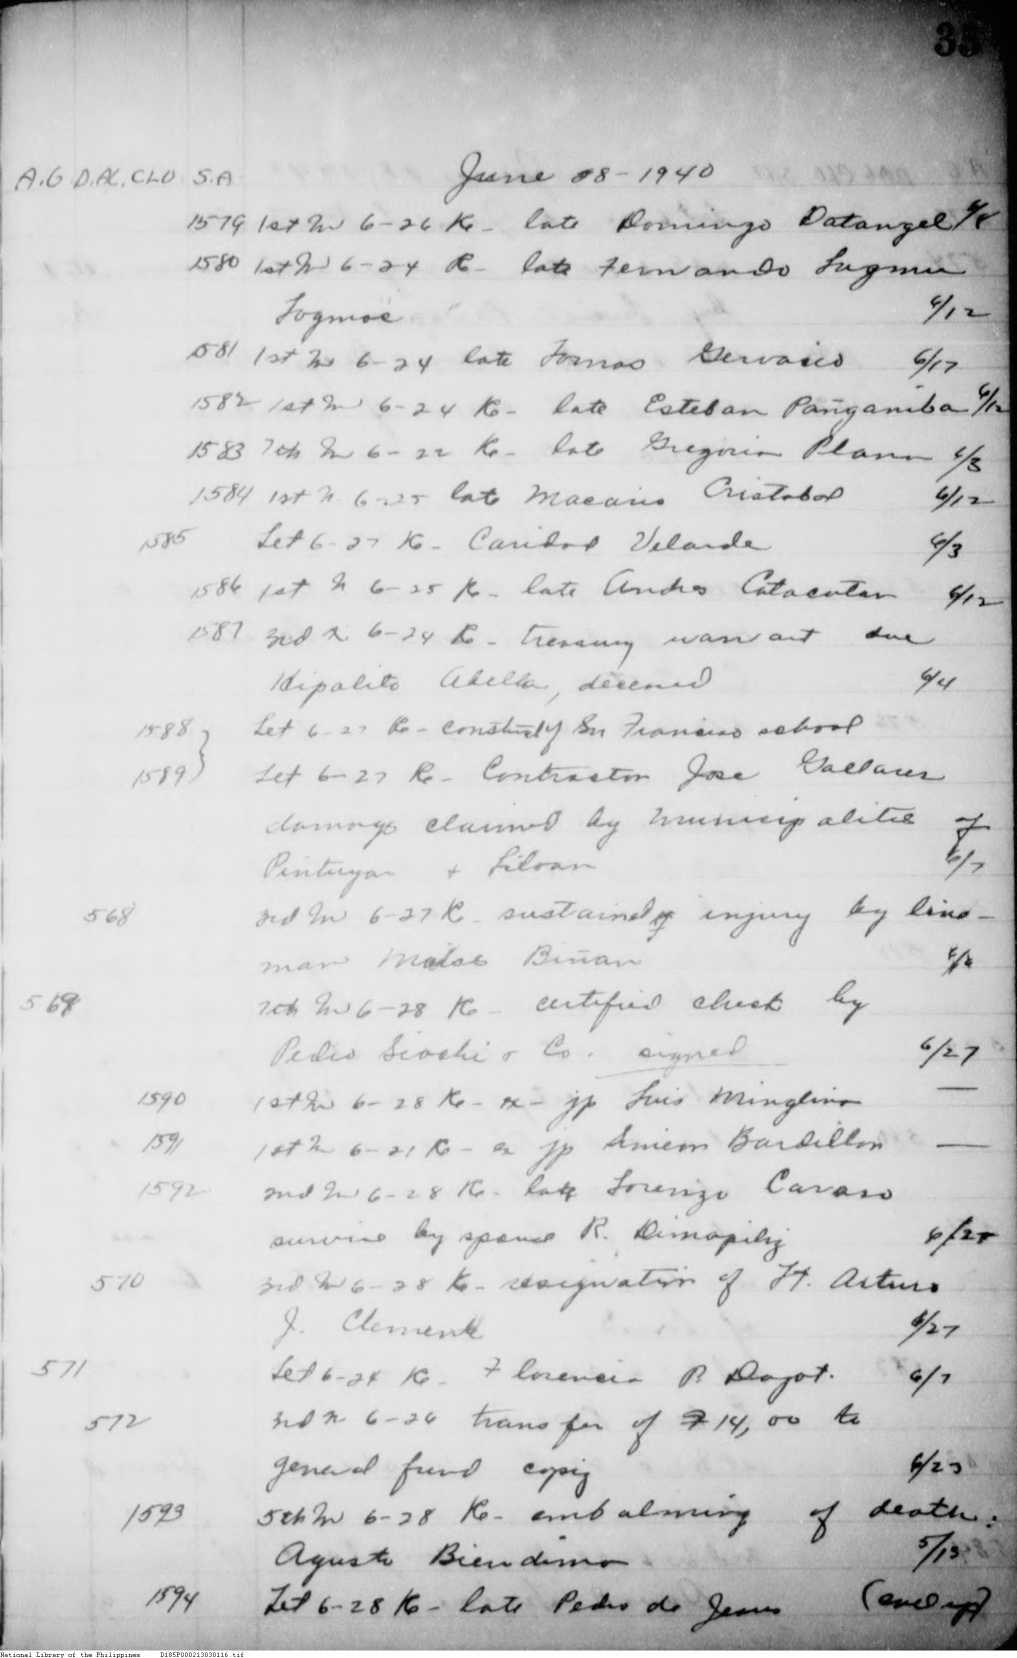 35
A.G D.A. CLO S.A June 08-1940
1579 1st In 6-26 Re- late Domingo Datangel 6/8
1580 1st In 6-24 Re- late Fernando
6/12
1581 1st In 6-24 late Tomas Gervacio 6/17
1582 1st In 6-24 Re- late Esteban Panganiba 6/12
1583 7th In 6-22 Re- late Gregorio Plana 6/3
1584 1st In 6-25 late Macario Cristobal 6/12
1585 Let 6-27 Re- Caridad Velarde 6/3
1586 1st In 6-25 Re- late Andres Catacutan 6/12
1587 3rd In 6-24 Re- treasury warrant due
Hipolito Abella, deceased 6/4
1588 Let 6-27 Re- of Sn Francisco school
1589 } Let 6-27 Re- Contractor Jose
damage claimed by municipalities of
Pintuyan + Liloan 6/7
568 3rd In 6-27 Re- sustained injury by line-
man Biñan
569 7th In 6-28 Re- certified check by
Pedro Siochi & Co. signed 6/27
1590 1st In 6-28 Re- ex- jp Luis —
1591 1st In 6-21 Re- ex jp Simeon Bardillon —
1592 2nd In 6-28 Re- late Lorenzo
survive by spouse R. Dimapiliz
570 3rd In 6-28 Re- resignation of Lt. Arturo
J. Clemente 6/27
571 Let 6-24 Re- Florencia P. Dagot. 6/7
572 3rd In 6-26 transfer of ₱14,00 to
general fund
1593 5th In 6-28 Re- embalming of death:
Biendima 5/13
1594 Let 6-28 Re- late Pedro de Jesus
National Library of the Philippines D185P000213030116.tif